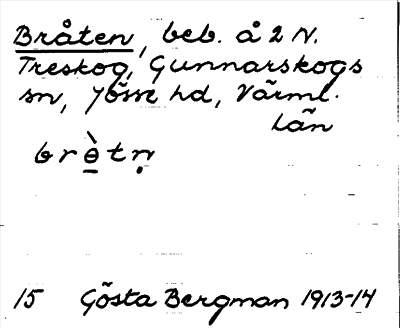 Bråten, beb. å 2 N.
Treskog, Gunnarskogs
sn, Jösse hd, Värml.
län
brè̱tṇ
15 Gösta Bergman 1913-14